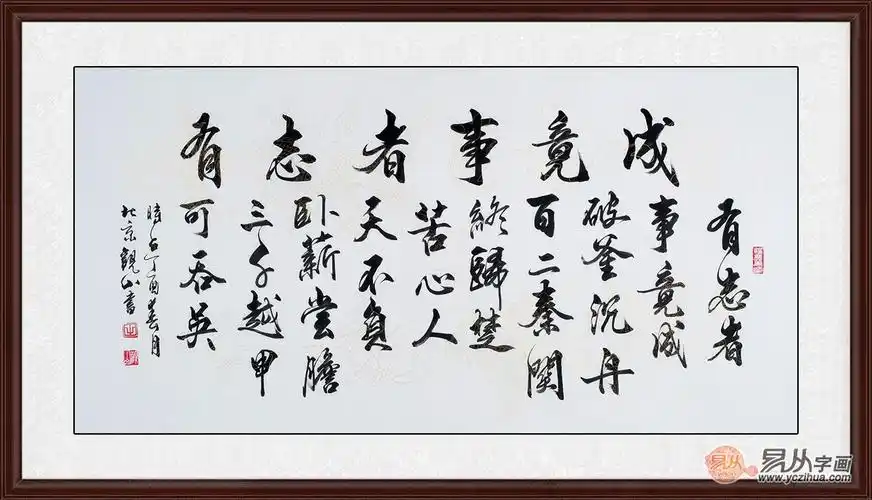 有志者事竟成
有志者
事竟成
破釜沉舟
百二秦關
終歸楚
苦心人
天不負
卧薪嘗膽
三千越甲
可吞吳
時在丁酉春月
北京觀山書
易从
易从字画
www.yczihua.com